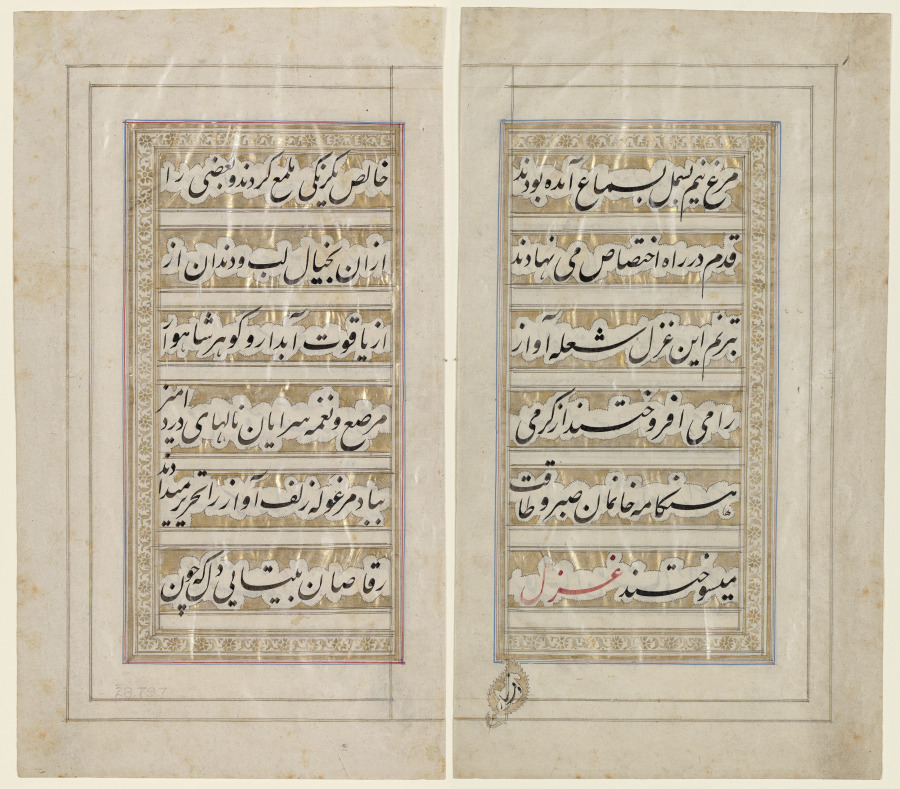 مرغ نیم بسمل بسماع آمده بودند
قدم در راه اختصاص می نهادند
بترنم این غزل شعله آواز
را می افروختند از کرمی
هنکامه خانمان صبر و طاقت
میسوختند غزل
خالص یکرنگی ملمع کردند و بعضی را
ازان بخیال لب و دندان از
از یاقوت آبدار و کوهر شاهوار
مرصع و نغمه سرایان نالهای درد امیز
بباد مرغوله زلف آواز را تحریر میدادند
رقاصان ببیتابی دل که چون